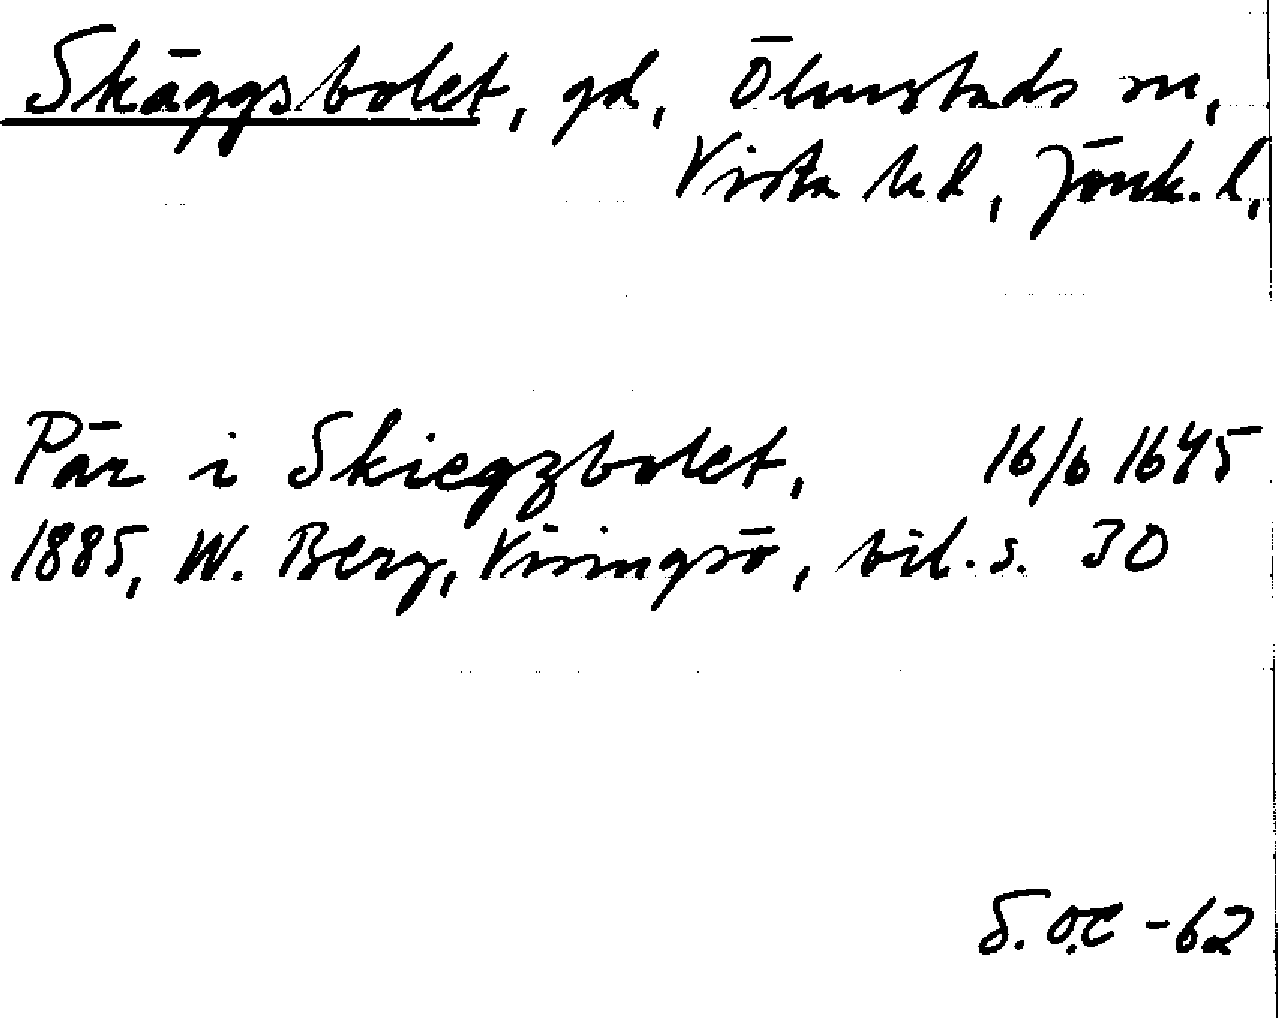 Skäggsbolet, gd, Ölmstads sn,
Vista hd, Jönk. l,
Pär i Skiegzbolet, 16/6 1645
1885, W. Berg, Visingsö, bil. s. 30
S.O.C -62